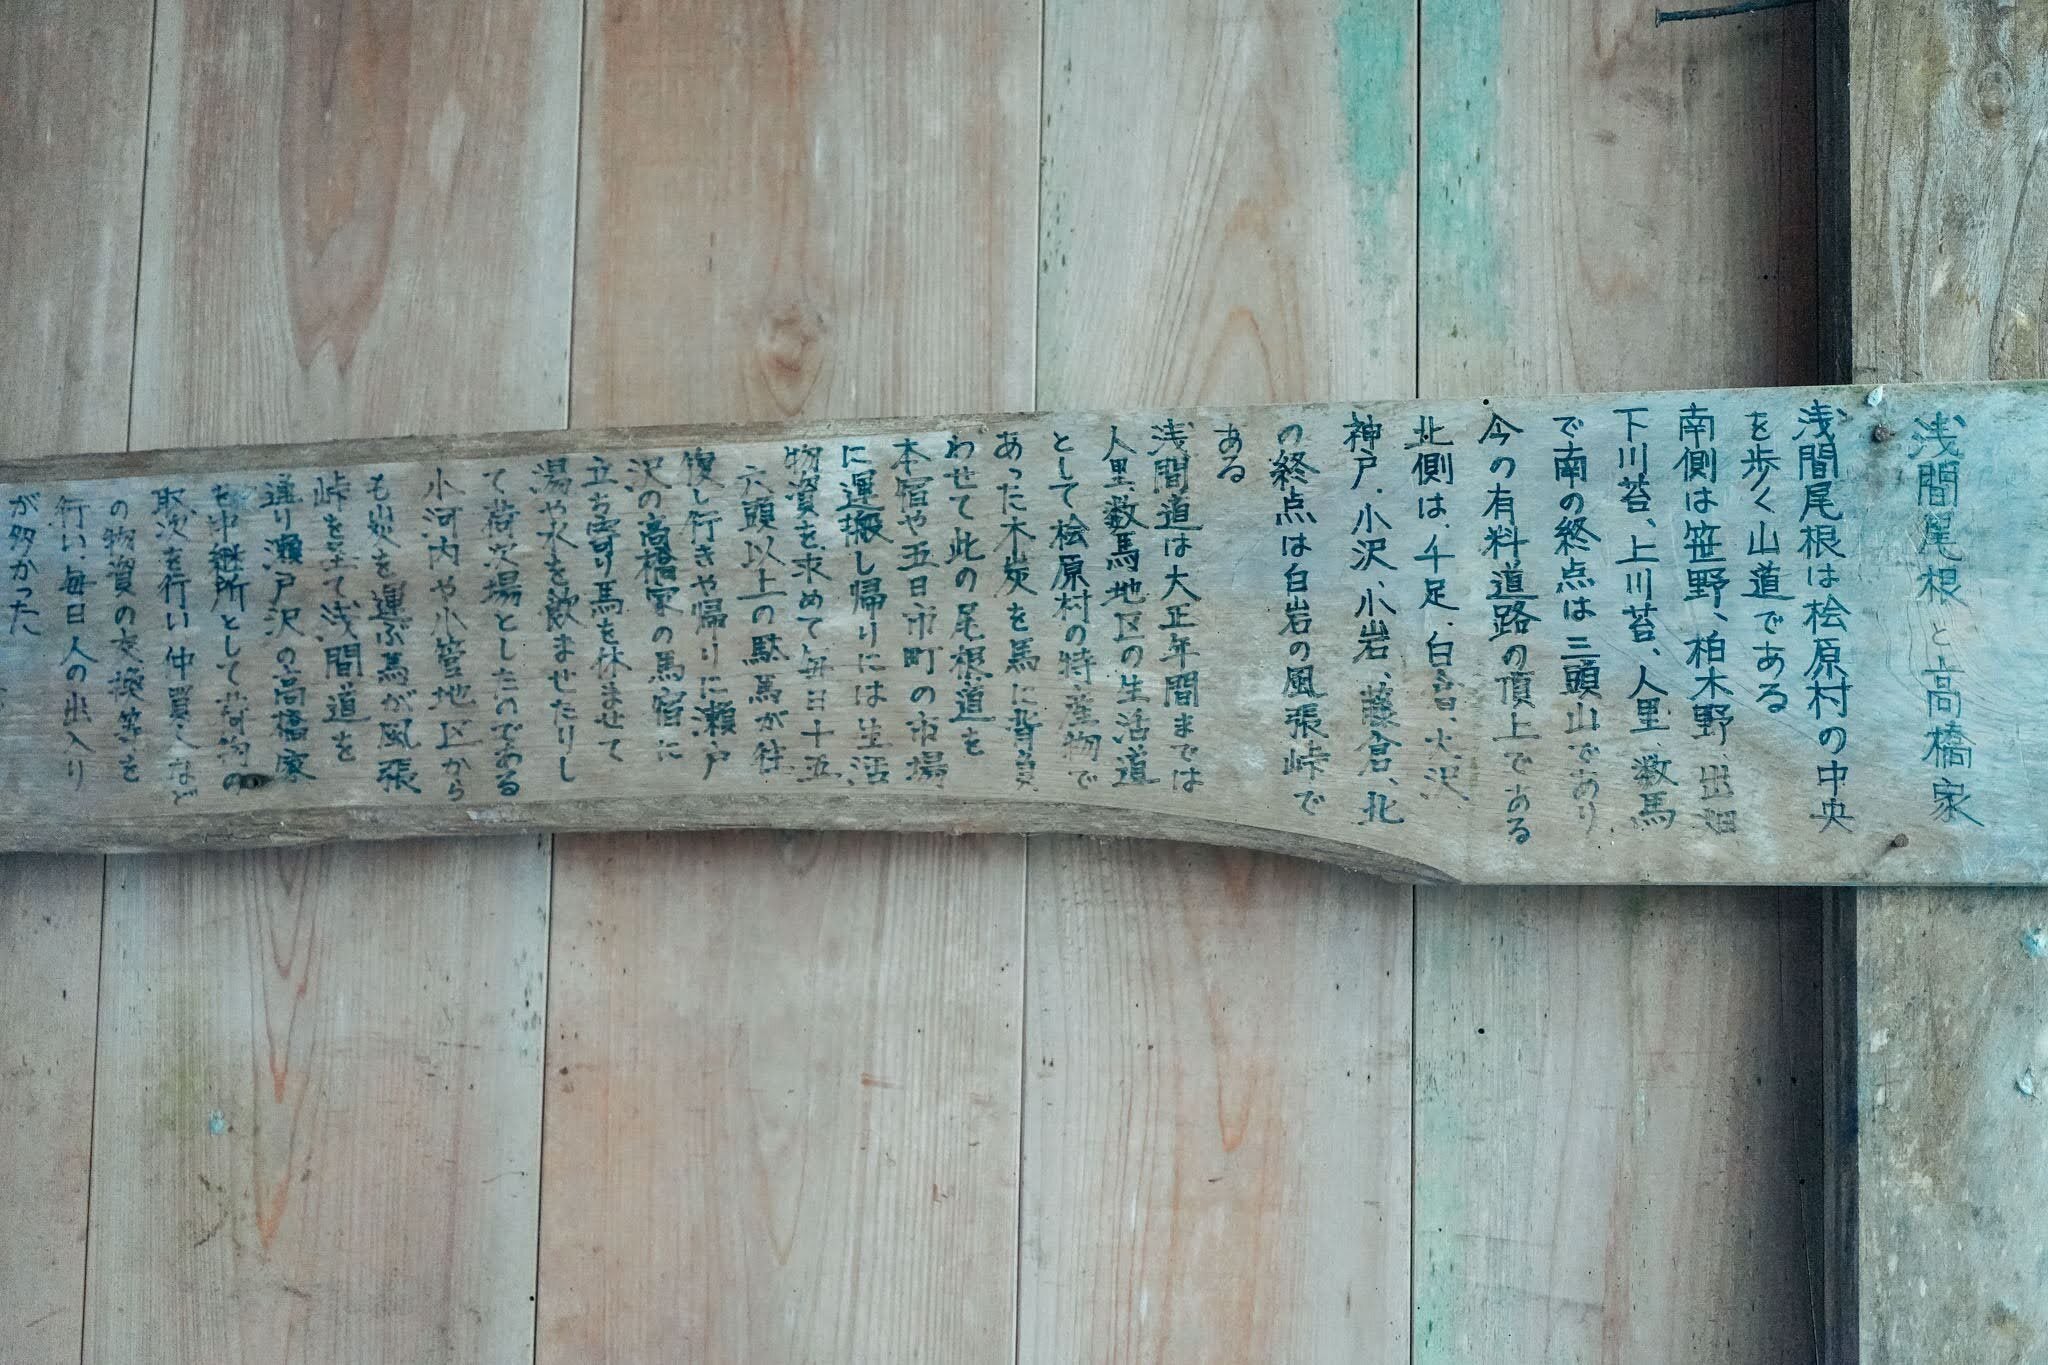 浅間尾根と高橋家
浅間尾根は桧原村の中央
を歩く山道である
南側は笹野、柏木野、出畑
下川苔、上川苔、人里、数馬
で南の終点は三頭山であり、
今の有料道路の頂上である
北側は、千足、白倉、大沢、
神戸、小沢、小岩、藤倉、北
の終点は白岩の風張峠で
ある
浅間道は大正年間までは
人里、数馬地区の生活道
として桧原村の特産物で
あった木炭を馬に背負
わせて此の尾根道を
本宿や五日市町の市場
に運搬し帰りには生活
物資を求めて毎日十五
六頭以上の駄馬が往
復し行きや帰りに瀬戸
沢の高橋家の馬宿に
立ち寄り馬を休ませて
湯や水を飲ませたりし
て荷次場としたのである
小河内や小菅地区から
も炭を運ぶ馬が風張
峠を至て浅間道を
通り瀬戸沢の高橋家
を中継所として荷物の
取次を行い仲買人など
の物資の交換等を
行い、毎日人の出入り
が多かった